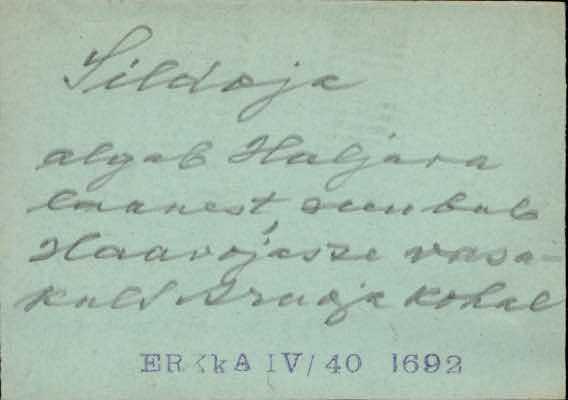 Sildoja
algab Haljava
laanest, suubub
Haavojasse vasa-
kult Aruoja kohal
ERKkA IV/40 1692